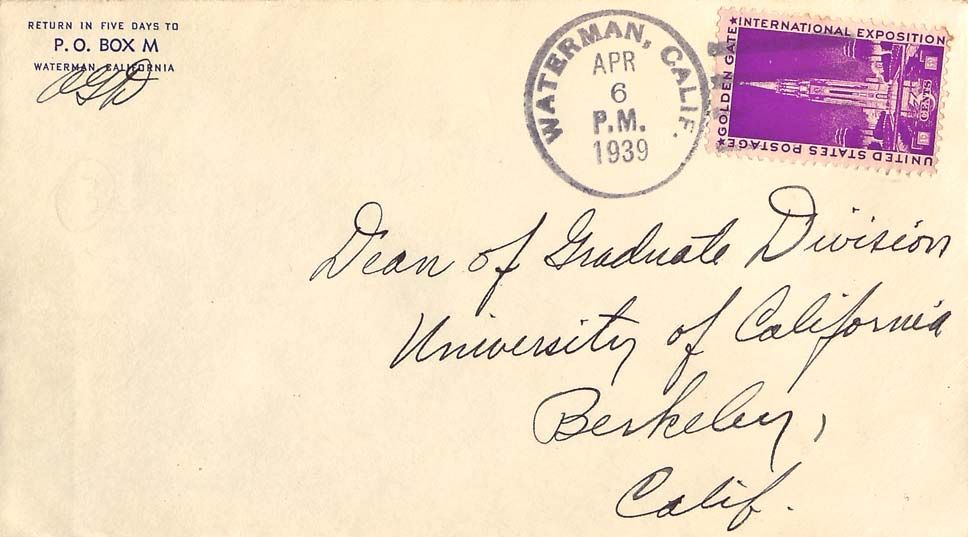 RETURN IN FIVE DAYS TO
P. O. BOX M
WATERMAN, CALIFORNIA
WATERMAN, CALIF.
APR
6
P.M.
1939
GOLDEN GATE INTERNATIONAL EXPOSITION
UNITED STATES POSTAGE
CENTS
Dean of Graduate Division
University of California
Berkeley,
Calif.